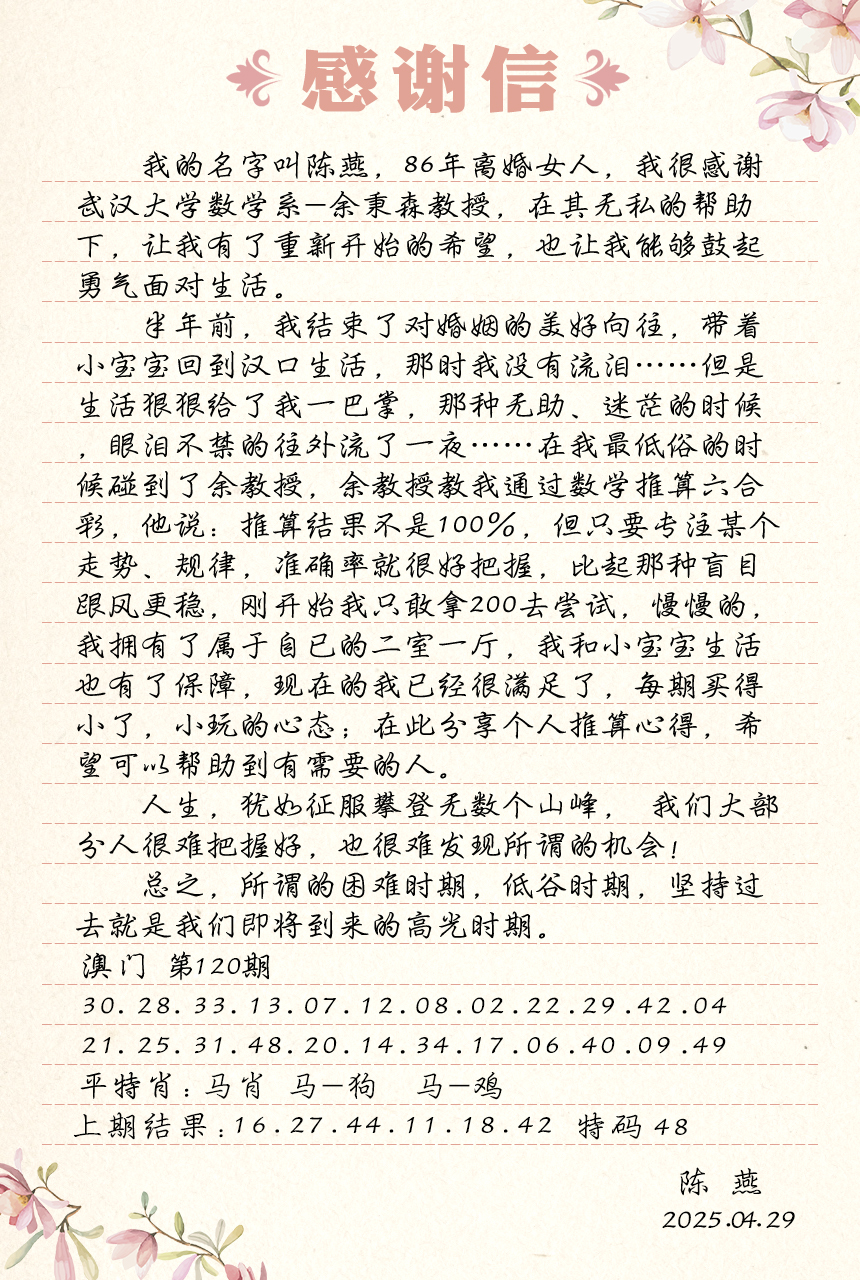 感谢信
我的名字叫陈燕，86年离婚女人，我很感谢
武汉大学数学系—余秉森教授，在其无私的帮助
下，让我有了重新开始的希望，也让我能够鼓起
勇气面对生活。
半年前，我结束了对婚姻的美好向往，带着
小宝宝回到汉口生活，那时我没有流泪……但是
生活狠狠给了我一巴掌，那种无助、迷茫的时候
，眼泪不禁的往外流了一夜……在我最低俗的时
候碰到了余教授，余教授教我通过数学推算六合
彩，他说：推算结果不是100%，但只要专注某个
走势、规律，准确率就很好把握，比起那种盲目
跟风更稳，刚开始我只敢拿200去尝试，慢慢的，
我拥有了属于自已的二室一厅，我和小宝宝生活
也有了保障，现在的我已经很满足了，每期买得
小了，小玩的心态；在此分享个人推算心得，希
望可以帮助到有需要的人。
人生，犹如征服攀登无数个山峰， 我们大部
分人很难把握好，也很难发现所谓的机会！
总之，所谓的困难时期，低谷时期，坚持过
去就是我们即将到来的高光时期。
澳门 第120期
30.28.33.13.07.12.08.02.22.29.42.04
21.25.31.48.20.14.34.17.06.40.09.49
平特肖：马肖 马—狗 马—鸡
上期结果：16.27.44.11.18.42 特码 48
陈 燕
2025.04.29